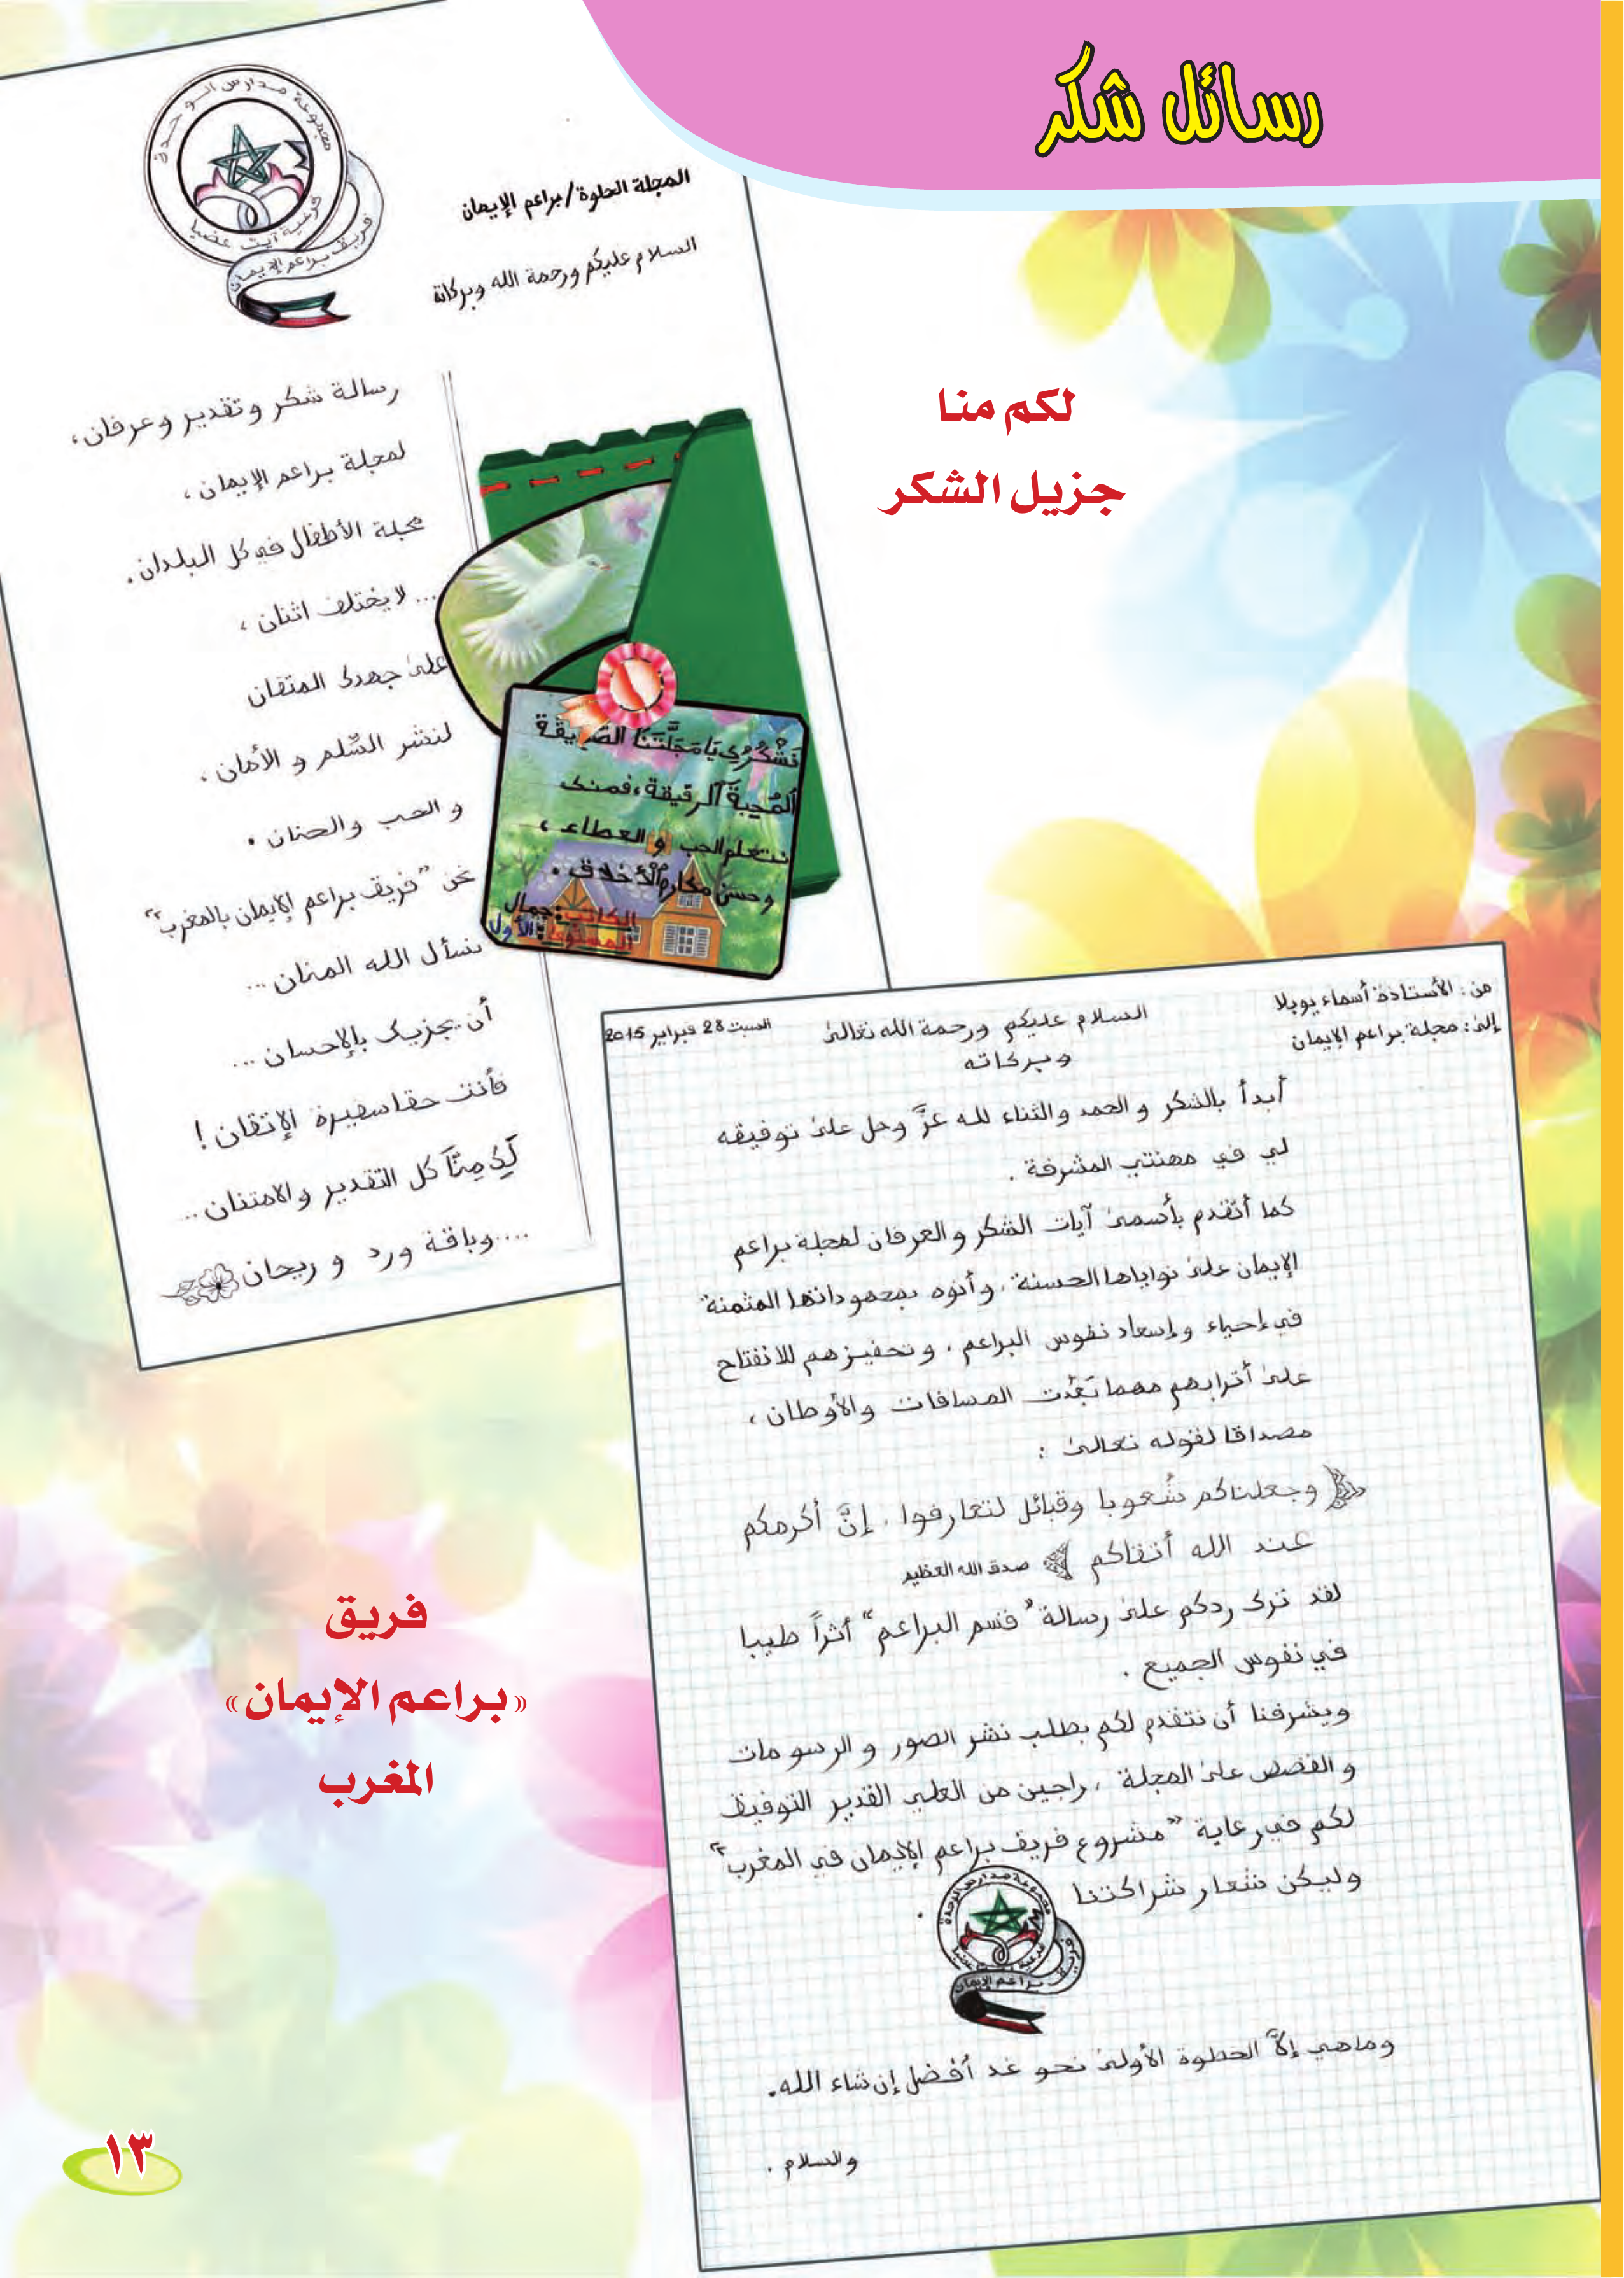 رسائل شكر
لكم منا
جزيل الشكر
مجموعة مدارس الوحدة
فرعية آيت عضيا
فريق براعم الإيمان
المجلة الحلوة/براعم الإيمان
السلام عليكم ورحمة الله وبركاته
رسالة شكر وتقدير وعرفان،
لمجلة براعم الإيمان،
مجلة الأطفال في كل البلدان.
... لا يختلف اثنان،
على جهدك المتقان
لنشر السِّلم و الأمان،
و الحب والحنان.
نحن "فريق براعم الإيمان بالمغرب"
نسأل الله المنان ...
أن يجزيك بالإحسان ...
فأنت حقا سفيرة الإتقان!
لَكِ مِنَّا كل التقدير والامتنان...
....وباقة ورد و ريحان
نَشْكُرُكِ يَا مَجَلَّتَنَا الصَّدِيقَة
اَلْمُحِبَةَ اَلرقيقة، فمنك
نتعلم الحب و العطاء،
وحسن مكارم الْأخلاق.
الكاتب: جمال
المستوى: الأول
من: الأستاذة أسماء يوبلا
إلى: مجلة براعم الإيمان
السبت 28 فبراير 2015
السلام عليكم ورحمة الله تعالى
وبركاته
أبدأ بالشكر و الحمد والثناء لله عزّ وجل على توفيقه
لي في مهنتي المشرفة.
كما أتقدم بأسمى آيات الشكر و العرفان لمجلة براعم
الإيمان على نواياها الحسنة، وأنوه بمجهوداتها المثمنة
في إحياء وإسعاد نفوس البراعم، وتحفيزهم للانفتاح
على أترابهم مهما بَعُدت المسافات والأوطان،
مصداقا لقوله تعالى:
وجعلناكم شُعوبا وقبائل لتعارفوا، إنَّ أكرمكم
عند الله أتقاكم صدق الله العظيم
لقد ترك ردكم على رسالة "قسم البراعم" أثراً طيبا
في نفوس الجميع.
ويشرفنا أن نتقدم لكم بطلب نشر الصور و الرسومات
و القصص على المجلة، راجين من العلي القدير التوفيق
لكم في رعاية "مشروع فريق براعم الإيمان في المغرب"
وليكن شعار شراكتنا .
مجموعة مدارس الوحدة
فريق براعم الإيمان
وماهي إلاَّ الخطوة الأولى نحو غد أفضل إن شاء الله.
والسلام.
فريق
«براعم الإيمان»
المغرب
١٣